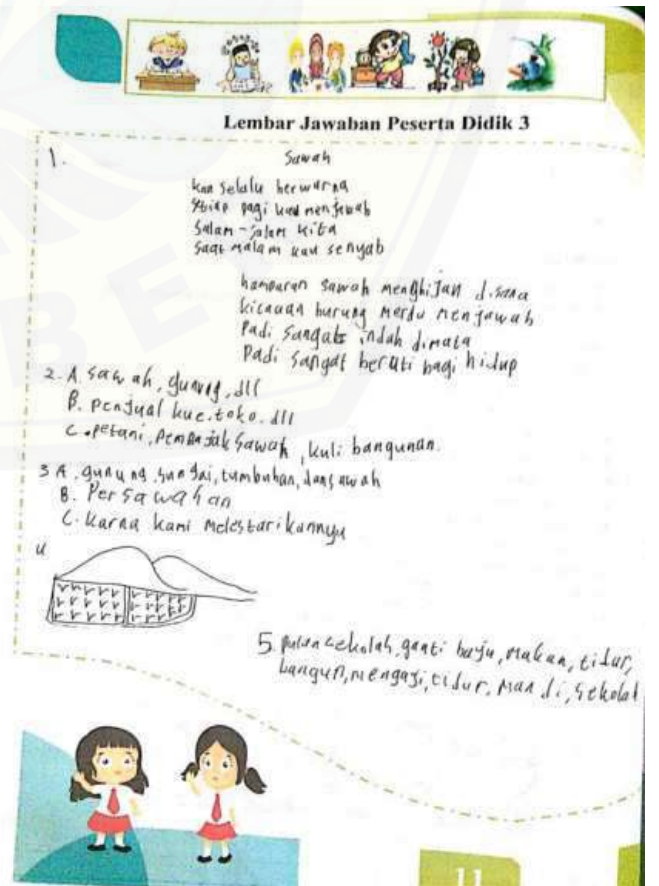 Lembar Jawaban Peserta Didik 3
1.
Sawah
kau selalu berwarna
Setiap pagi kau menjawab
Salam-salam kita
Saat malam kau senyab
hamparan sawah menghijau disana
kicauan burung merdu menjawab
Padi sangat indah dimata
Padi sangat berarti bagi hidup
2. A. sawah, gunung, dll
B. penjual kue. toko. dll
C. petani, pembajak sawah, kuli bangunan.
3 A. gunung, sungai, tumbuhan, dan sawah
B. Persawahan
C. Karna kami melestarikannya
4
5. pulang sekolah, ganti baju, makan, tidur,
bangun, mengaji, tidur, mandi, sekolah
11